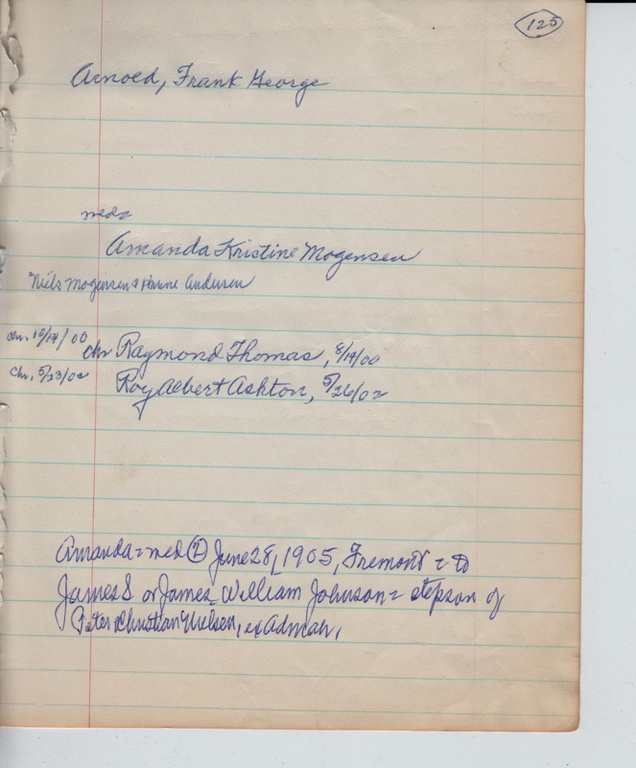 125
Arnold, Frank George
med=
Amanda Kristine Mogensen
Niels Mogensen & Anine Andersen
chr. 10/14/00 chr Raymond Thomas, 8/14/00
Chr. 5/23/02 Roy Albert Ashton, 5/26/02
Amanda = med ② June 28, 1905, Fremont = to
James S or James William Johnson = stepson of
Peter Christian Nielsen, ex Admah,